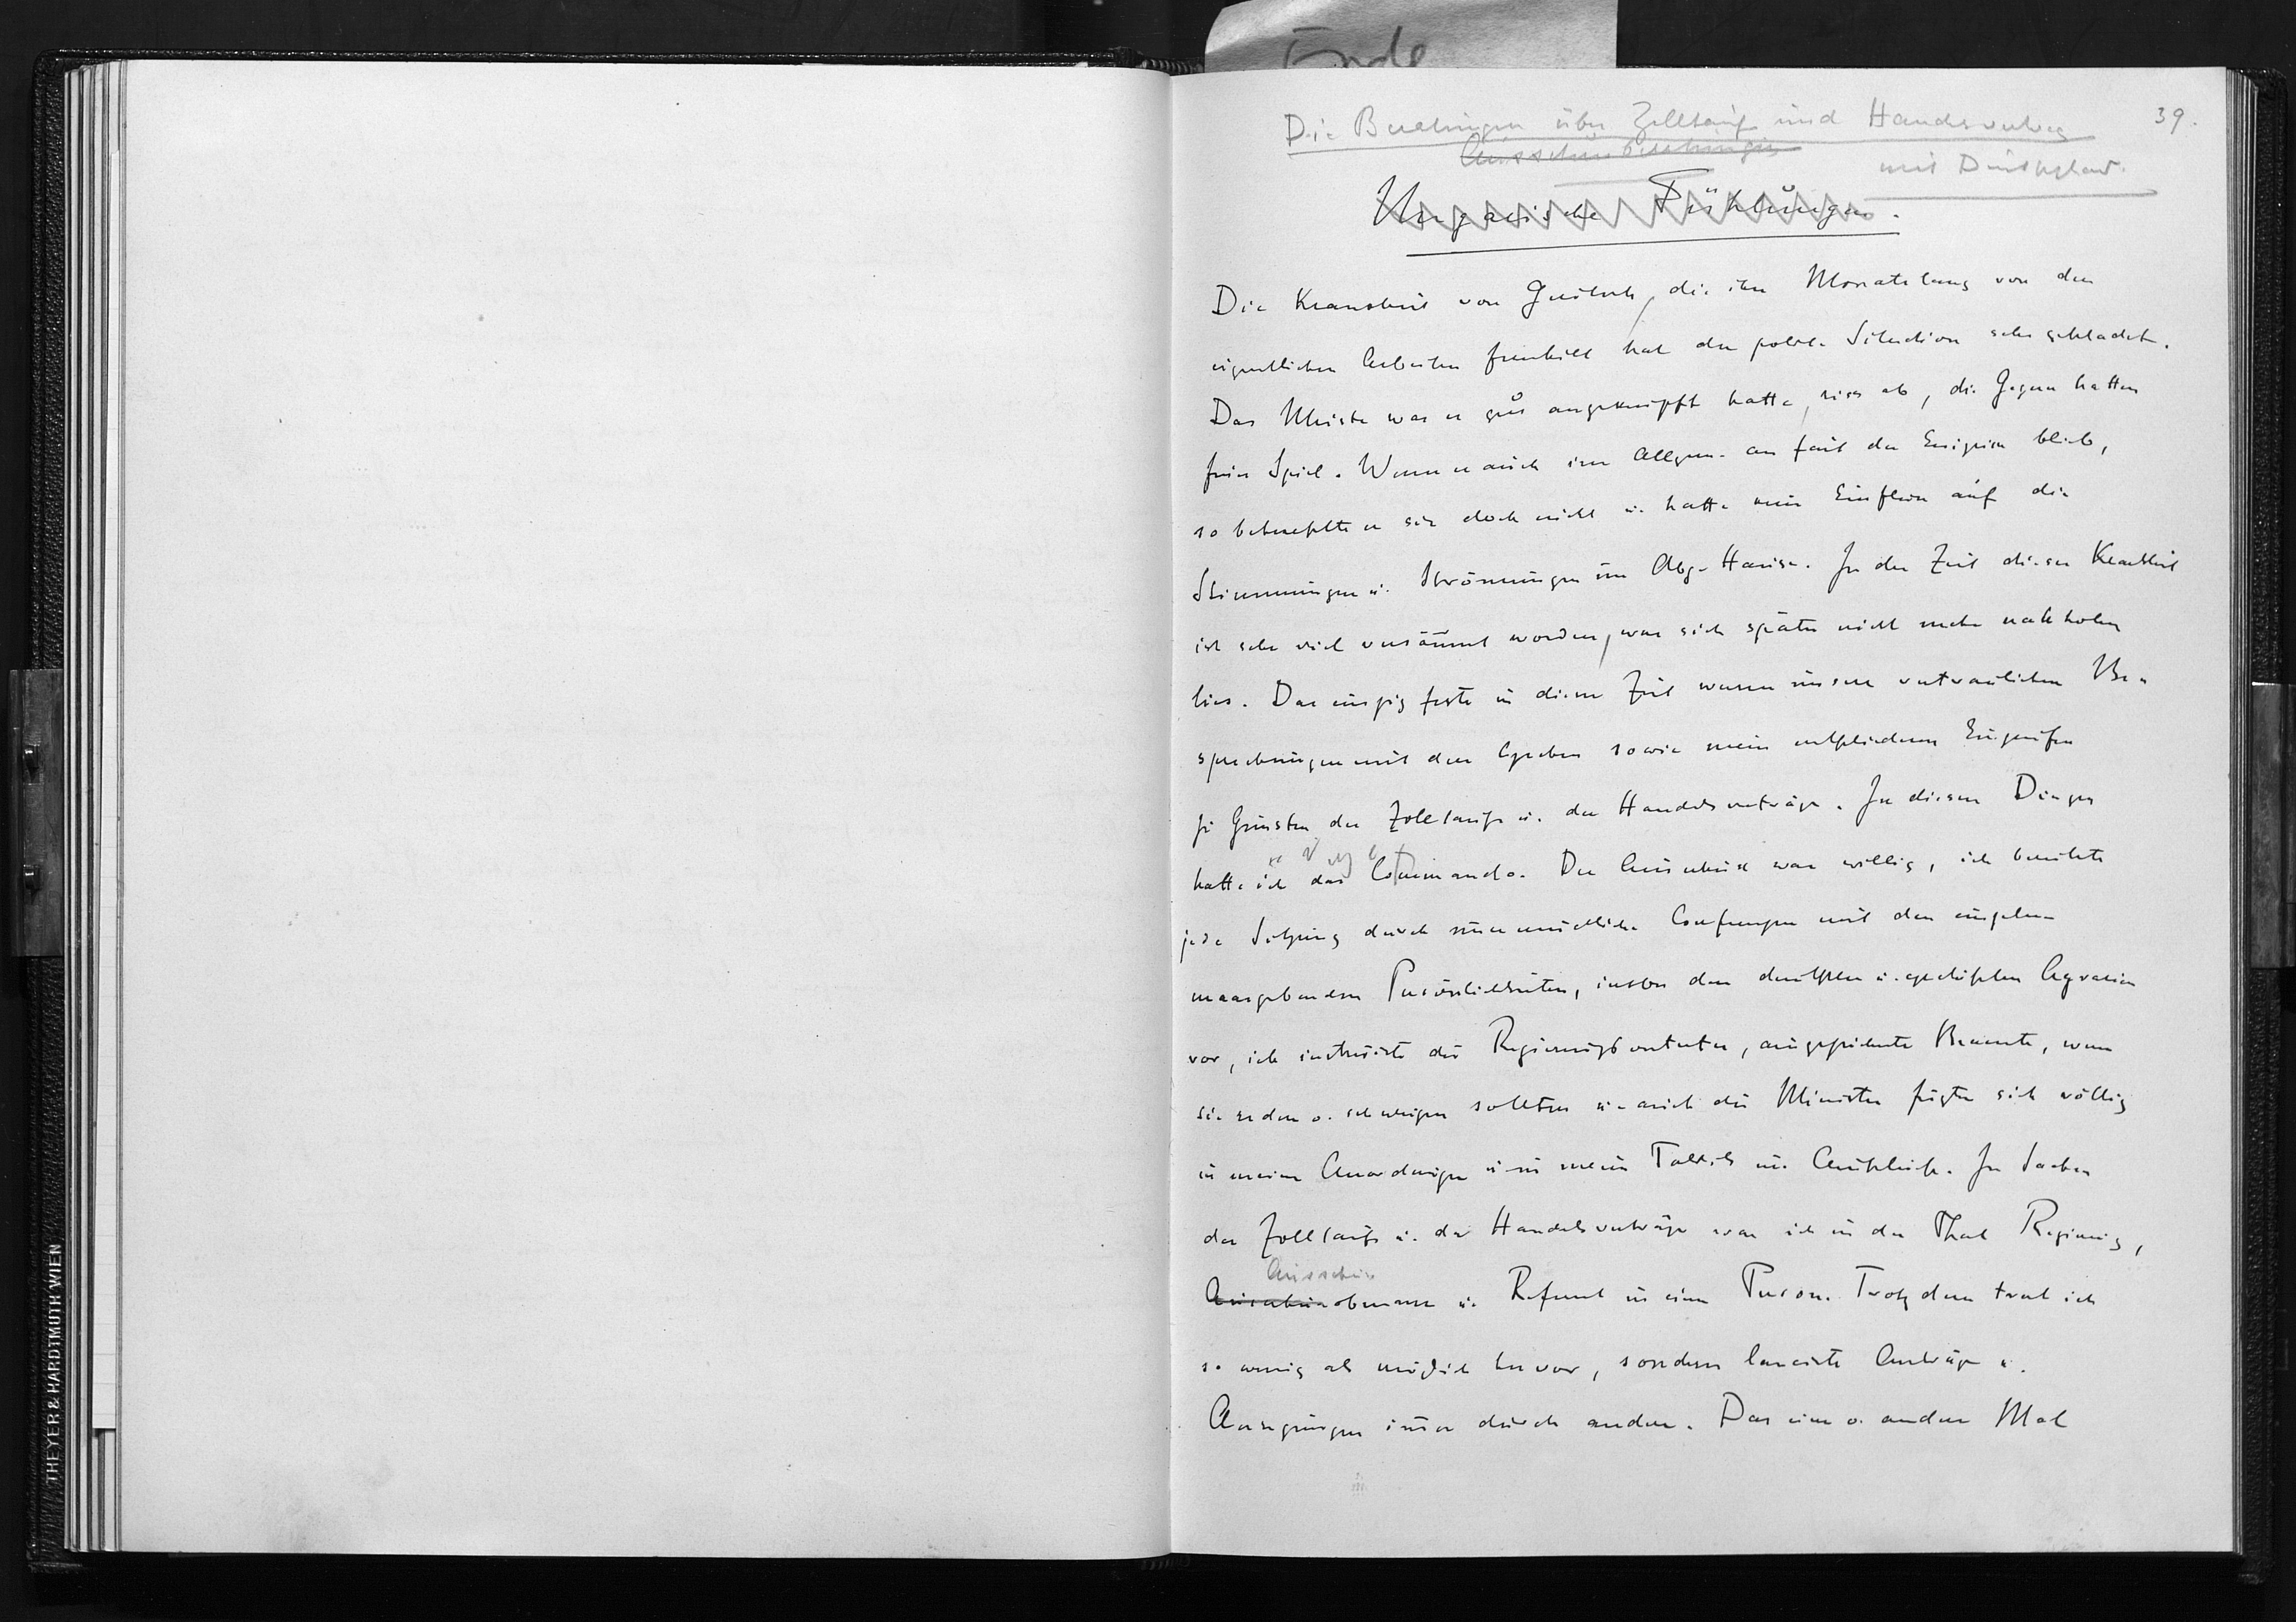 Ende
39.
Die Beratungen über Zolltarif und Handelsvertrag
Ausschussberatungen
mit Deutschland.
Ungarische Fühlungen.
Die Krankheit von Gautsch, die ihn Monatelang von den
eigentlichen Arbeiten fernhielt hat der polit. Situation sehr geschadet.
Das Meiste was er gut angeknüpft hatte, riss ab, die Gegner hatten
freies Spiel. Wenn er auch im Allgem. au fait der Ereignisse blieb,
so beherrschte er sie doch nicht u. hatte keinen Einfluss auf die
Stimmungen u. Strömungen im Abg. Hause. In der Zeit dieser Krankheit
ist sehr viel versäumt worden, was sich später nicht mehr nachholen
liess. Das einzig feste in dieser Zeit waren unsere vertraulichen Be-
sprechungen mit den sowie mein entschiedenes Eingreifen
zu Gunsten des Zolltarifs u. der Handelsverträge. In diesen Dingen
hatte ich das Commando. Der Ausschuss war willig, ich bereitete
jede Sitzung durch unermüdliche Conferenzen mit den einzelnen
maasgebenden Persönlichkeiten, insbes den deutschen u. tschechischen Agrariern
vor, ich instruirte die Regierungsvertreter, ausgezeichnete Beamte, wann
sie reden o. schweigen sollten u. auch die Minister fügten sich völlig
in meine Anordnungen u. in meine Taktik im Ausschusse. In Sachen
des Zolltarifs u. der Handelsverträge war ich in der That Regierung,
Ausschuss
Ausschussobmann u. Referent in einer Person. Trotzdem trat ich
so wenig als möglich hervor, sondern lancirte Anträge u.
Anregungen immer durch andere. Das eine o. andere Mal
THEYER & HARDTMUTH WIEN